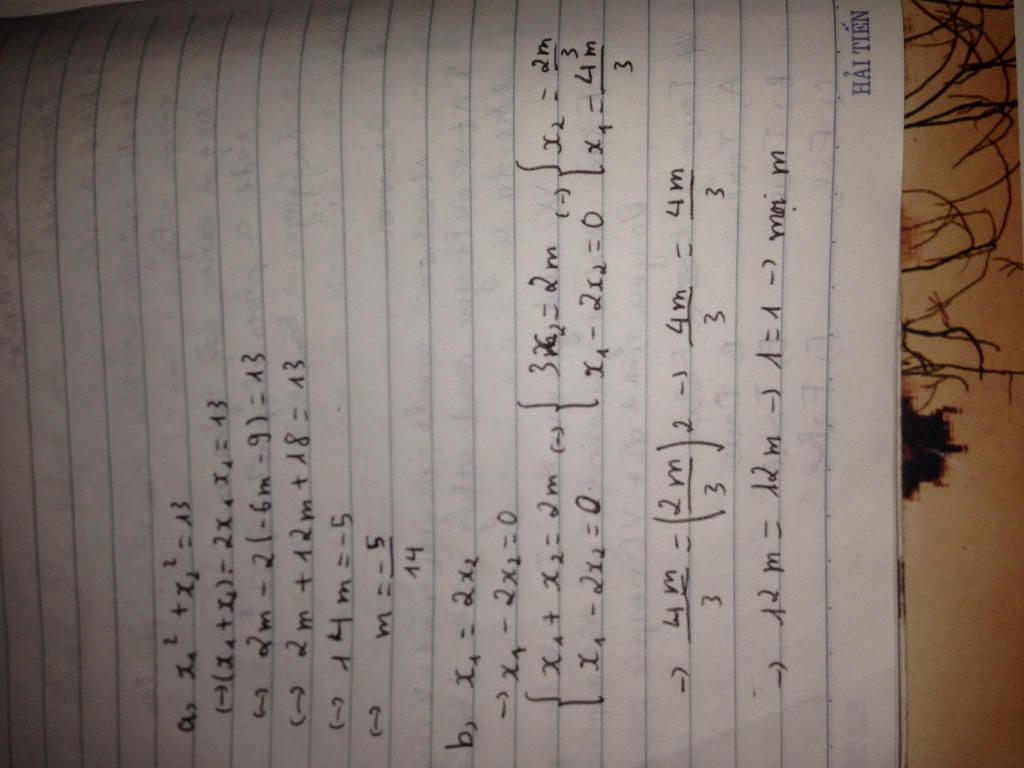 a, x₁² + x₂² = 13
(→ (x₁ + x₂) = 2x₁x₂ = 13
(→ 2m - 2(-6m - 9) = 13
(→ 2m + 12m + 18 = 13
(→ 14m = -5
(→ m = -5/14
b, x₁ - 2x₂
→ x₁ - 2x₂ = 0
{ x₁ + x₂ = 2m (→ { 3x₂ = 2m (→ { x₂ = 2m/3
{ x₁ - 2x₂ = 0 { x₁ - 2x₂ = 0 { x₁ = 4m/3
→ 4m/3 = (2m/3) 2 → 4m/3 = 4m/3
→ 12m = 12m → 1 = 1 → mọi m
HẢI TIẾN